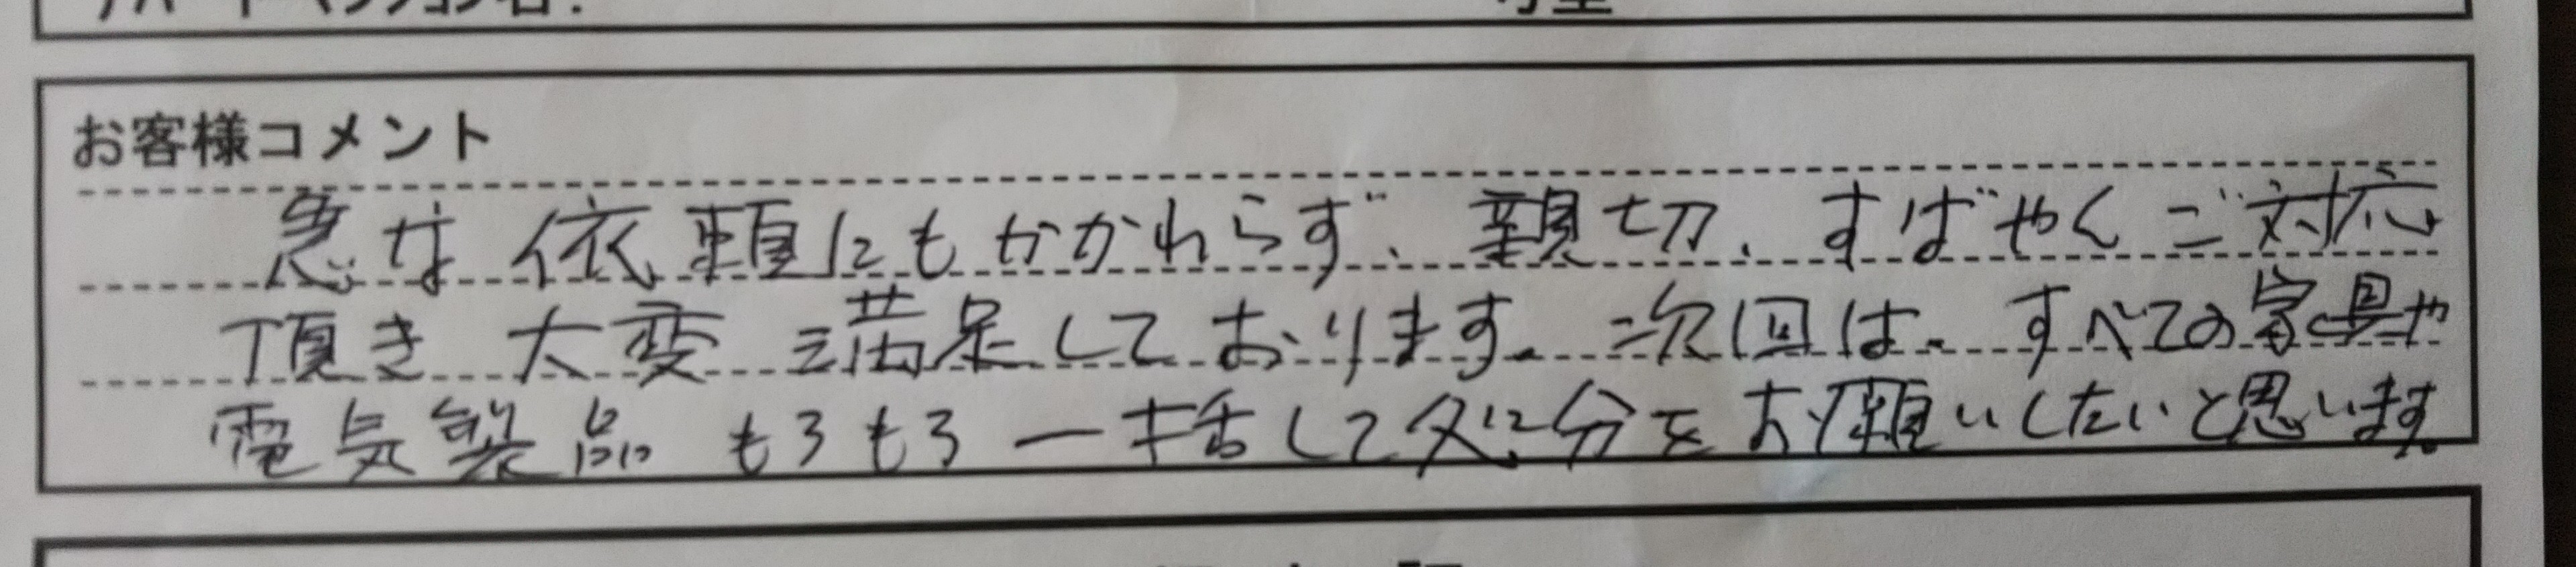 アパートマンション名:
お客様コメント
急な依頼にもかかわらず、親切、すばやくご対応
頂き大変満足しております。次回は、すべての家具や
電気製品もろもろ一括して処分をお願いしたいと思います。